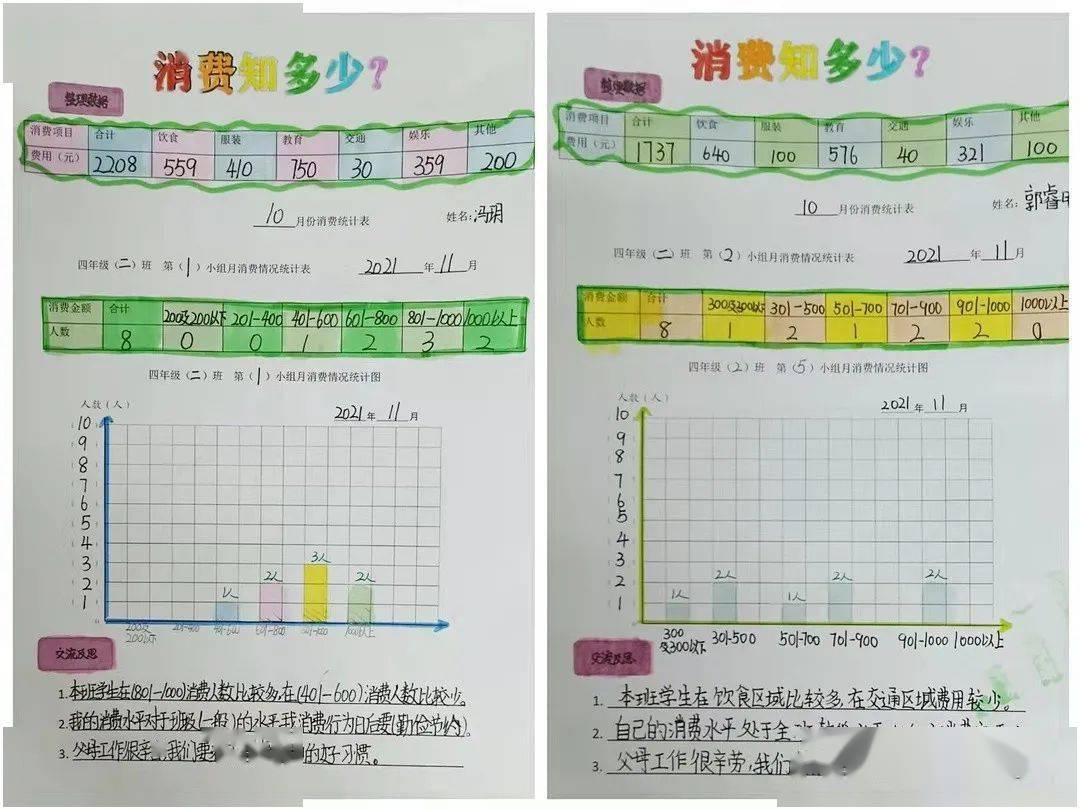 消费知多少?
整理数据
消费项目 合计 饮食 服装 教育 交通 娱乐 其他
费用(元) 2208 559 410 750 30 359 200
10 月份消费统计表 姓名: 冯玥
四年级(二)班 第(1)小组月消费情况统计表 2021 年 11 月
消费金额 合计 200及200以下 201-400 401-600 601-800 801-1000 1000以上
人数 8 0 0 1 2 3 2
四年级(二)班 第(1)小组月消费情况统计图
人数(人)
2021年 11 月
10
9
8
7
6
5
4
3
2
1
1人 2人 3人 2人
200及200以下 201-400 401-600 601-800 801-1000 1000以上
交流反思
1. 本班学生在(801-1000)消费人数比较多,在(401-600)消费人数比较少。
2. 我的消费水平对于班级(一般)的水平,我消费行为日后要(勤俭节约)。
3. 父母工作很辛 我们要 的好习惯。
消费知多少?
整理数据
消费项目 合计 饮食 服装 教育 交通 娱乐 其他
费用(元) 1737 640 100 576 40 321 100
10 月份消费统计表 姓名: 郭睿
四年级(二)班 第(2)小组月消费情况统计表 2021 年 11 月
消费金额 合计 300及300以下 301-500 501-700 701-900 901-1000 1000以上
人数 8 1 2 1 2 2 0
四年级(2)班 第(5)小组月消费情况统计图
人数(人)
2021年 11 月
10
9
8
7
6
5
4
3
2
1
1人 2人 1人 2人 2人
300及300以下 301-500 501-700 701-900 901-1000 1000以上
交流反思
1. 本班学生在饮食区域比较多,在交通区域费用较少。
2. 自己的消费水平处于全
3. 父母工作很辛劳,我们